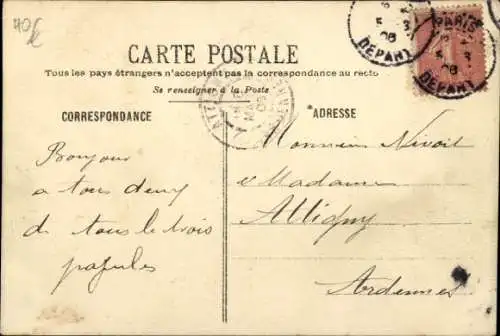 40
CARTE POSTALE
Tous les pays étrangers n'acceptent pas la correspondance au recto
Se renseigner à la Poste
CORRESPONDANCE
ADRESSE
PARIS
DEPART
PARIS
DEPART
Bonjour
a tous deux
de tous le trois
Monsieur Nivoit
e Madame
Attigny
Ardennes